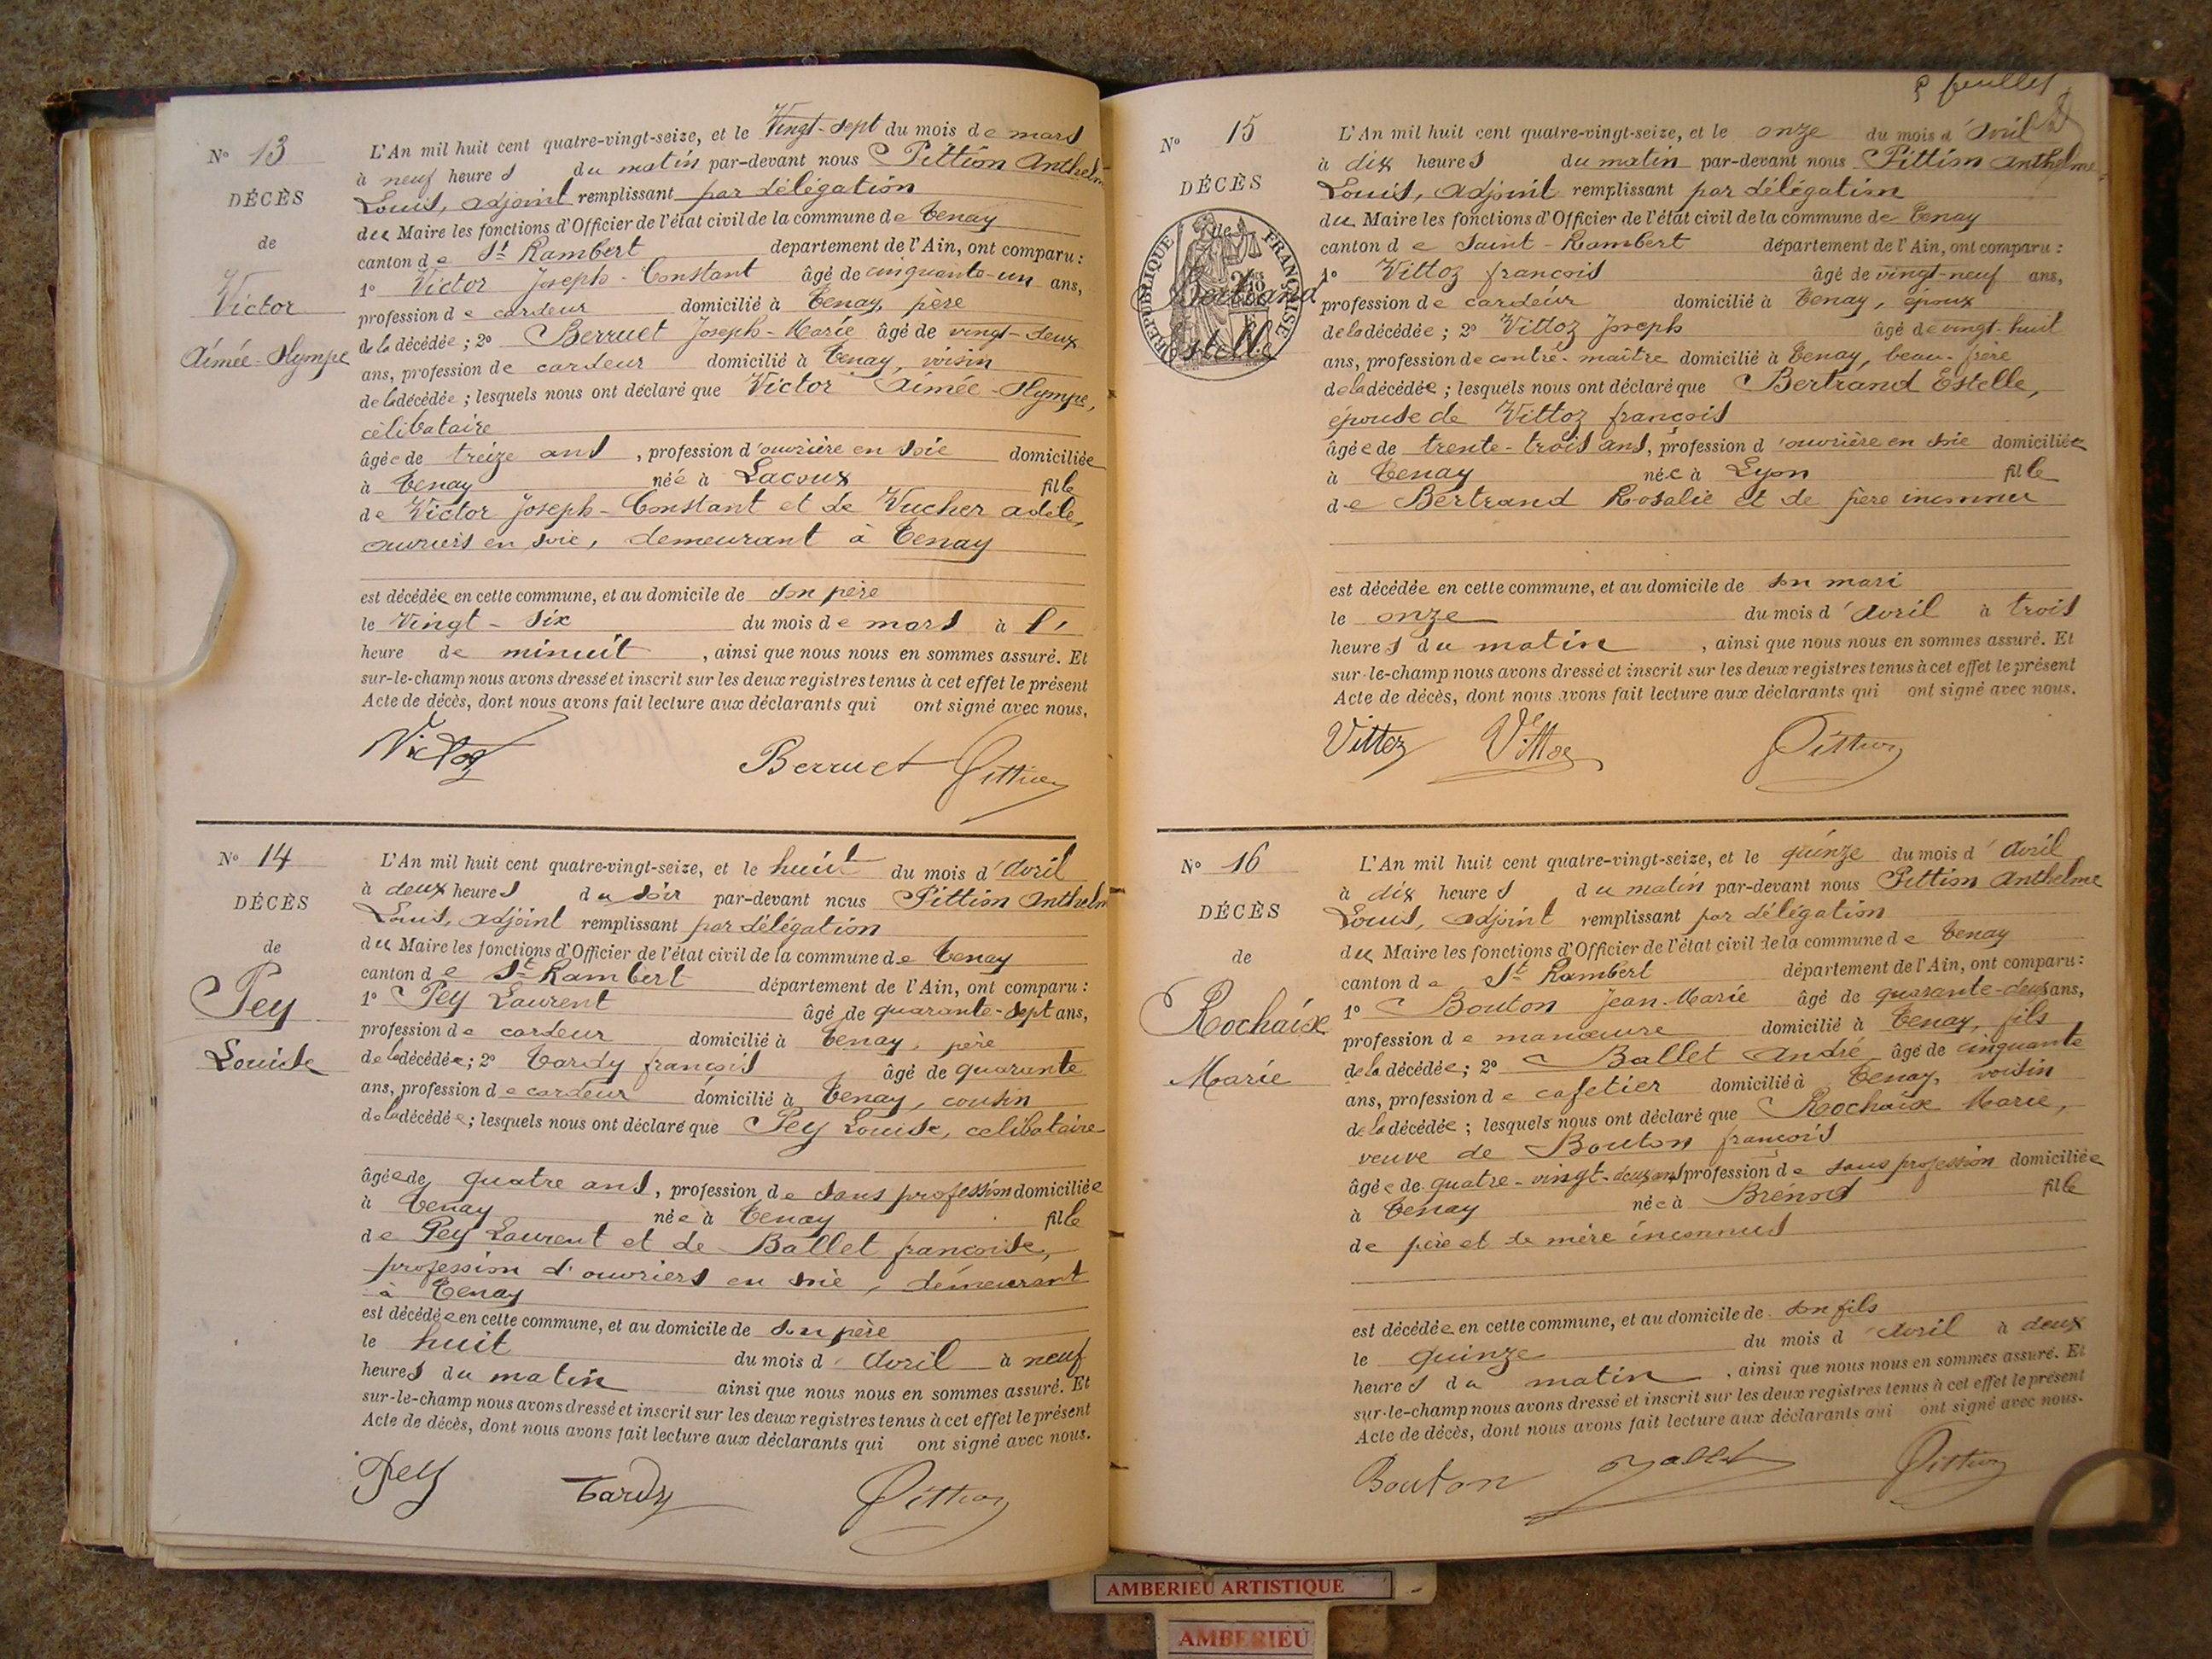 N° 13
DÉCÈS
de
Victor
Aimée-Olympe
L'An mil huit cent quatre-vingt-seize, et le Vingt-sept du mois de mars
à neuf heures du matin par-devant nous Pittion Anthelme
Louis, adjoint remplissant par délégation
du Maire les fonctions d'Officier de l'état civil de la commune de Tenay
canton de St Rambert département de l'Ain, ont comparu :
1° Victor Joseph-Constant âgé de cinquante-un ans,
profession de cardeur domicilié à Tenay, père
de la décédée ; 2° Berruet Joseph-Marie âgé de vingt-deux
ans, profession de cardeur domicilié à Tenay, voisin
de la décédée ; lesquels nous ont déclaré que Victor Aimée-Olympe,
célibataire
âgée de treize ans, profession d'ouvrière en soie domiciliée
à Tenay née à Lacoux fille
de Victor Joseph-Constant et de Vucher Adèle,
ouvriers en soie, demeurant à Tenay
est décédée en cette commune, et au domicile de son père
le Vingt-six du mois de mars à l'
heure de minuit, ainsi que nous nous en sommes assuré. Et
sur-le-champ nous avons dressé et inscrit sur les deux registres tenus à cet effet le présent
Acte de décès, dont nous avons fait lecture aux déclarants qui ont signé avec nous.
Victor Berruet Pittion
N° 14
DÉCÈS
de
Pey
Louise
L'An mil huit cent quatre-vingt-seize, et le huit du mois d'Avril
à deux heures du soir par-devant nous Pittion Anthelm
Louis, adjoint remplissant par délégation
du Maire les fonctions d'Officier de l'état civil de la commune de Tenay
canton de St Rambert département de l'Ain, ont comparu :
1° Pey Laurent âgé de quarante-sept ans,
profession de cardeur domicilié à Tenay, père
de la décédée ; 2° Tardy françois âgé de quarante
ans, profession de cardeur domicilié à Tenay, cousin
de la décédée ; lesquels nous ont déclaré que Pey Louise, célibataire
âgée de quatre ans, profession de sans profession domiciliée
à Tenay née à Tenay fille
de Pey Laurent et de Ballet françoise,
profession d'ouvriers en soie, demeurant
à Tenay
est décédée en cette commune, et au domicile de son père
le huit du mois d'Avril à neuf
heures du matin ainsi que nous nous en sommes assuré. Et
sur-le-champ nous avons dressé et inscrit sur les deux registres tenus à cet effet le présent
Acte de décès, dont nous avons fait lecture aux déclarants qui ont signé avec nous.
Pey Tardy Pittion
feuillet
N° 15
DÉCÈS
de
RÉPUBLIQUE FRANÇAISE
Bertrand
Estelle
L'An mil huit cent quatre-vingt-seize, et le onze du mois d'Avril
à dix heures du matin par-devant nous Pittion Anthelme
Louis, adjoint remplissant par délégation
du Maire les fonctions d'Officier de l'état civil de la commune de Tenay
canton de Saint-Rambert département de l'Ain, ont comparu :
1° Vittoz françois âgé de vingt-neuf ans,
profession de cardeur domicilié à Tenay, époux
de la décédée ; 2° Vittoz Joseph âgé de vingt-huit
ans, profession de contre-maître domicilié à Tenay, beau-frère
de la décédée ; lesquels nous ont déclaré que Bertrand Estelle,
épouse de Vittoz françois
âgée de trente-trois ans, profession d'ouvrière en soie domiciliée
à Tenay née à Lyon fille
de Bertrand Rosalie et de père inconnu
est décédée en cette commune, et au domicile de son mari
le onze du mois d'Avril à trois
heures du matin, ainsi que nous nous en sommes assuré. Et
sur-le-champ nous avons dressé et inscrit sur les deux registres tenus à cet effet le présent
Acte de décès, dont nous avons fait lecture aux déclarants qui ont signé avec nous.
Vittoz Vittoz Pittion
N° 16
DÉCÈS
de
Rochaix
Marie
L'An mil huit cent quatre-vingt-seize, et le quinze du mois d'Avril
à dix heures du matin par-devant nous Pittion Anthelme
Louis, adjoint remplissant par délégation
du Maire les fonctions d'Officier de l'état civil de la commune de Tenay
canton de St Rambert département de l'Ain, ont comparu :
1° Bouton Jean-Marie âgé de quarante-deux ans,
profession de manœuvre domicilié à Tenay, fils
de la décédée ; 2° Ballet André âgé de cinquante
ans, profession de cafetier domicilié à Tenay, voisin
de la décédée ; lesquels nous ont déclaré que Rochaix Marie,
veuve de Bouton françois
âgée de quatre-vingt-deux ans profession de sans profession domiciliée
à Tenay née à Brénod fille
de père et de mère inconnus
est décédée en cette commune, et au domicile de son fils
le quinze du mois d'Avril à deux
heures du matin, ainsi que nous nous en sommes assuré. Et
sur-le-champ nous avons dressé et inscrit sur les deux registres tenus à cet effet le présent
Acte de décès, dont nous avons fait lecture aux déclarants qui ont signé avec nous.
Bouton Ballet Pittion
AMBERIEU ARTISTIQUE
AMBERIEU